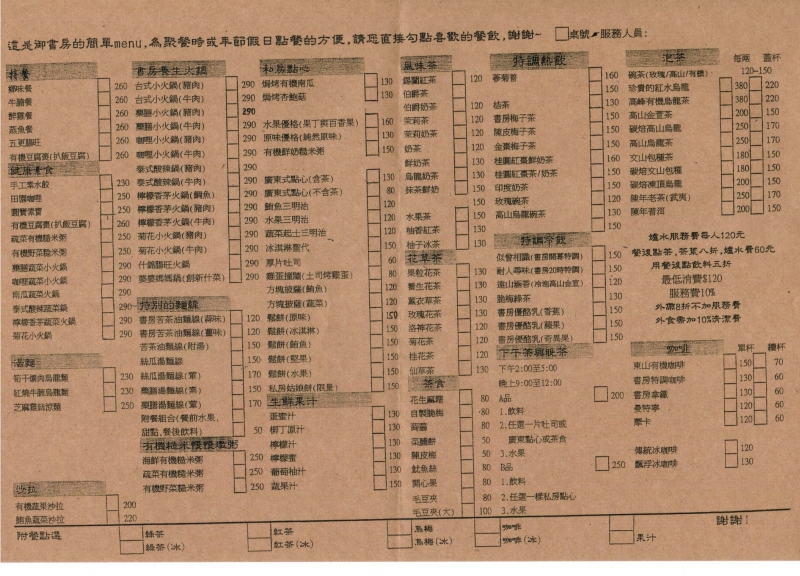 這是御書房的簡單menu,為聚餐時或年節假日點餐的方便,請您直接勾點喜歡的餐飲,謝謝~ 桌號 服務人員:
簡餐
鄉味餐 260
牛腩餐 260
醉雞餐 260
蒸魚餐 260
五更腸旺 260
有機豆腐棗(扒飯豆腐) 260
健康素食
手工素水餃 230
田園咖哩 250
圓寶素齋 250
有機豆腐棗(扒飯豆腐) 260
蔬菜有機糙米粥 250
有機野菜糙米粥 250
藥膳蔬菜小火鍋 290
咖哩蔬菜小火鍋 290
南瓜蔬菜火鍋 290
泰式酸辣蔬菜小火鍋 290
檸檬香茅蔬菜火鍋 290
菊花小火鍋 290
若麵
筍干爌肉烏龍麵 230
紅燒牛腩烏龍麵 230
芝麻雞絲涼麵 250
沙拉
有機蔬果沙拉 200
鮪魚蔬菜沙拉 220
書房養生火鍋
台式小火鍋(豬肉) 290
台式小火鍋(牛肉) 290
藥膳小火鍋(豬肉) 290
藥膳小火鍋(牛肉) 290
咖哩小火鍋(豬肉) 290
咖哩小火鍋(牛肉) 290
泰式酸辣鍋(豬肉) 290
泰式酸辣鍋(牛肉) 290
檸檬香茅火鍋(鯛魚) 290
檸檬香茅火鍋(豬肉) 290
檸檬香茅火鍋(牛肉) 290
菊花小火鍋(豬肉) 290
菊花小火鍋(牛肉) 290
什錦腸旺火鍋 290
婆婆媽媽鍋(創新什菜) 290
特別的麵線
書房苦茶油麵線(蒜味) 120
書房苦茶油麵線(薑味) 120
苦茶油麵線(附湯) 120
絲瓜湯麵線 150
絲瓜湯麵線(葷) 170
藥膳湯麵線(素) 150
藥膳湯麵線(葷) 170
附餐組合(餐前水果,
甜點,餐後飲料) 50
有機糙米慢慢燉粥
海鮮有機糙米粥 250
蔬菜有機糙米粥 250
有機野菜糙米粥 250
和房點心
焗烤有機南瓜 130
焗烤杏鮑菇 130
水果優格(果丁與百香果) 160
原味優格(純然原味) 130
有機鮮奶糙米粥 150
廣東式點心(含茶) 130
廣東式點心(不含茶) 80
鮪魚三明治
水果三明治
蔬菜起士三明治
冰淇淋聖代
厚片吐司
雞蛋撞牆(土司烤雞蛋)
方塊披薩(鮪魚)
方塊披薩(蔬菜)
鬆餅(原味)
鬆餅(冰淇淋)
鬆餅(鮪魚)
鬆餅(堅果)
鬆餅(水果)
私房姑娘餅(限量)
生鮮果汁
蛋蜜汁
柳丁原汁
檸檬汁
檸檬蜜
葡萄柚汁
蔬果汁
風味茶
錫蘭紅茶 120
伯爵茶
伯爵奶茶
茉莉茶
茉莉奶茶
奶茶
鮮奶茶
烏龍奶茶
抹茶鮮奶
水果茶
柚香紅茶
柚子冰茶
花草茶
果粒花茶
養生花茶
薰衣草茶
玫瑰花茶
洛神花茶
菊花茶
桂花茶
仙草茶
茶食
花生麻糬 80
自製脆梅 50
蒟蒻 50
菜脯餅 50
陳皮梅 50
魷魚絲 80
開心果 80
毛豆夾 80
毛豆夾(大) 100
特調熱飲
蔘菊普 160
桔茶
書房梅子茶
陳皮梅茶
金棗梅子茶
桂圓紅棗鮮奶茶
桂圓紅棗茶/奶茶
印度奶茶
玫瑰碗茶
高山烏龍碗茶
特調冷飲
似曾相識(書房開幕特調) 150
耐人尋味(書房20時特調) 150
遠山飄香(冷泡高山金萱) 150
脆梅綠茶
書房優酪乳(香蕉)
書房優酪乳(蘋果)
書房優酪乳(奇異果)
下午茶與晚茶
下午2:00至5:00
晚上9:00至12:00
A品 200
1.飲料
2.任選一片吐司或
廣東點心或茶食
3.水果
B品 250
1.飲料
2.任選一樣私房點心
3.水果
泡茶 每兩 蓋杯
碗茶(玫瑰/高山/有機) 120-150
珍貴的紅水烏龍 380 220
高峰有機烏龍茶 380 220
高山金萱茶
碳焙高山烏龍
高山烏龍茶
文山包種茶
碳焙文山包種
碳焙凍頂烏龍
陳年老茶(武夷)
陳年普洱 200 150
爐水服務費每人120元
餐後點茶,茶葉八折,爐水費60元
用餐後點飲料五折
最低消費$120
服務費10%
外帶8折不加服務費
外食需加10%清潔費
咖啡 單杯 續杯
東山有機咖啡 150 70
書房特調咖啡 130 60
書房拿鐵 130 60
曼特寧 120 60
摩卡 120 60
傳統冰咖啡 120
飄浮冰咖啡 130
謝謝!
附餐點選 綠茶 紅茶 烏梅 咖啡 果汁
綠茶(冰) 紅茶(冰) 烏梅(冰) 咖啡(冰)